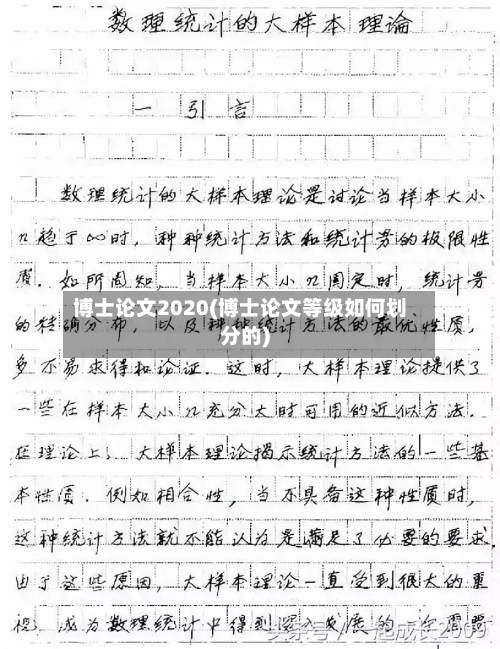 数理统计的大样本理论
一 引 言
数理统计的大样本理论是讨论当样本大小
n趋于∞时，种种统计方法和统计劳的极限性
质。如所周知，当样本大小n固定时，统计劳
博士论文2020(博士论文等级如何划
分的)
的精确分布，以及种种统计方法的最优性质，
多不易求得和论证。这时，大样本理论提供了
一些在样本大小n充分大时可用的近似方法。
在理论上，大样本理论揭示统计方法的一些基
本性质。例如相合性，当不具备这种性质时，
这种统计方法就不能认为是满足了必要的要求。
由于这些原因，大样本理论一直受到很大的重
视，成为数理统计中得到深入发展的一个重要
头条号/一起成长2009